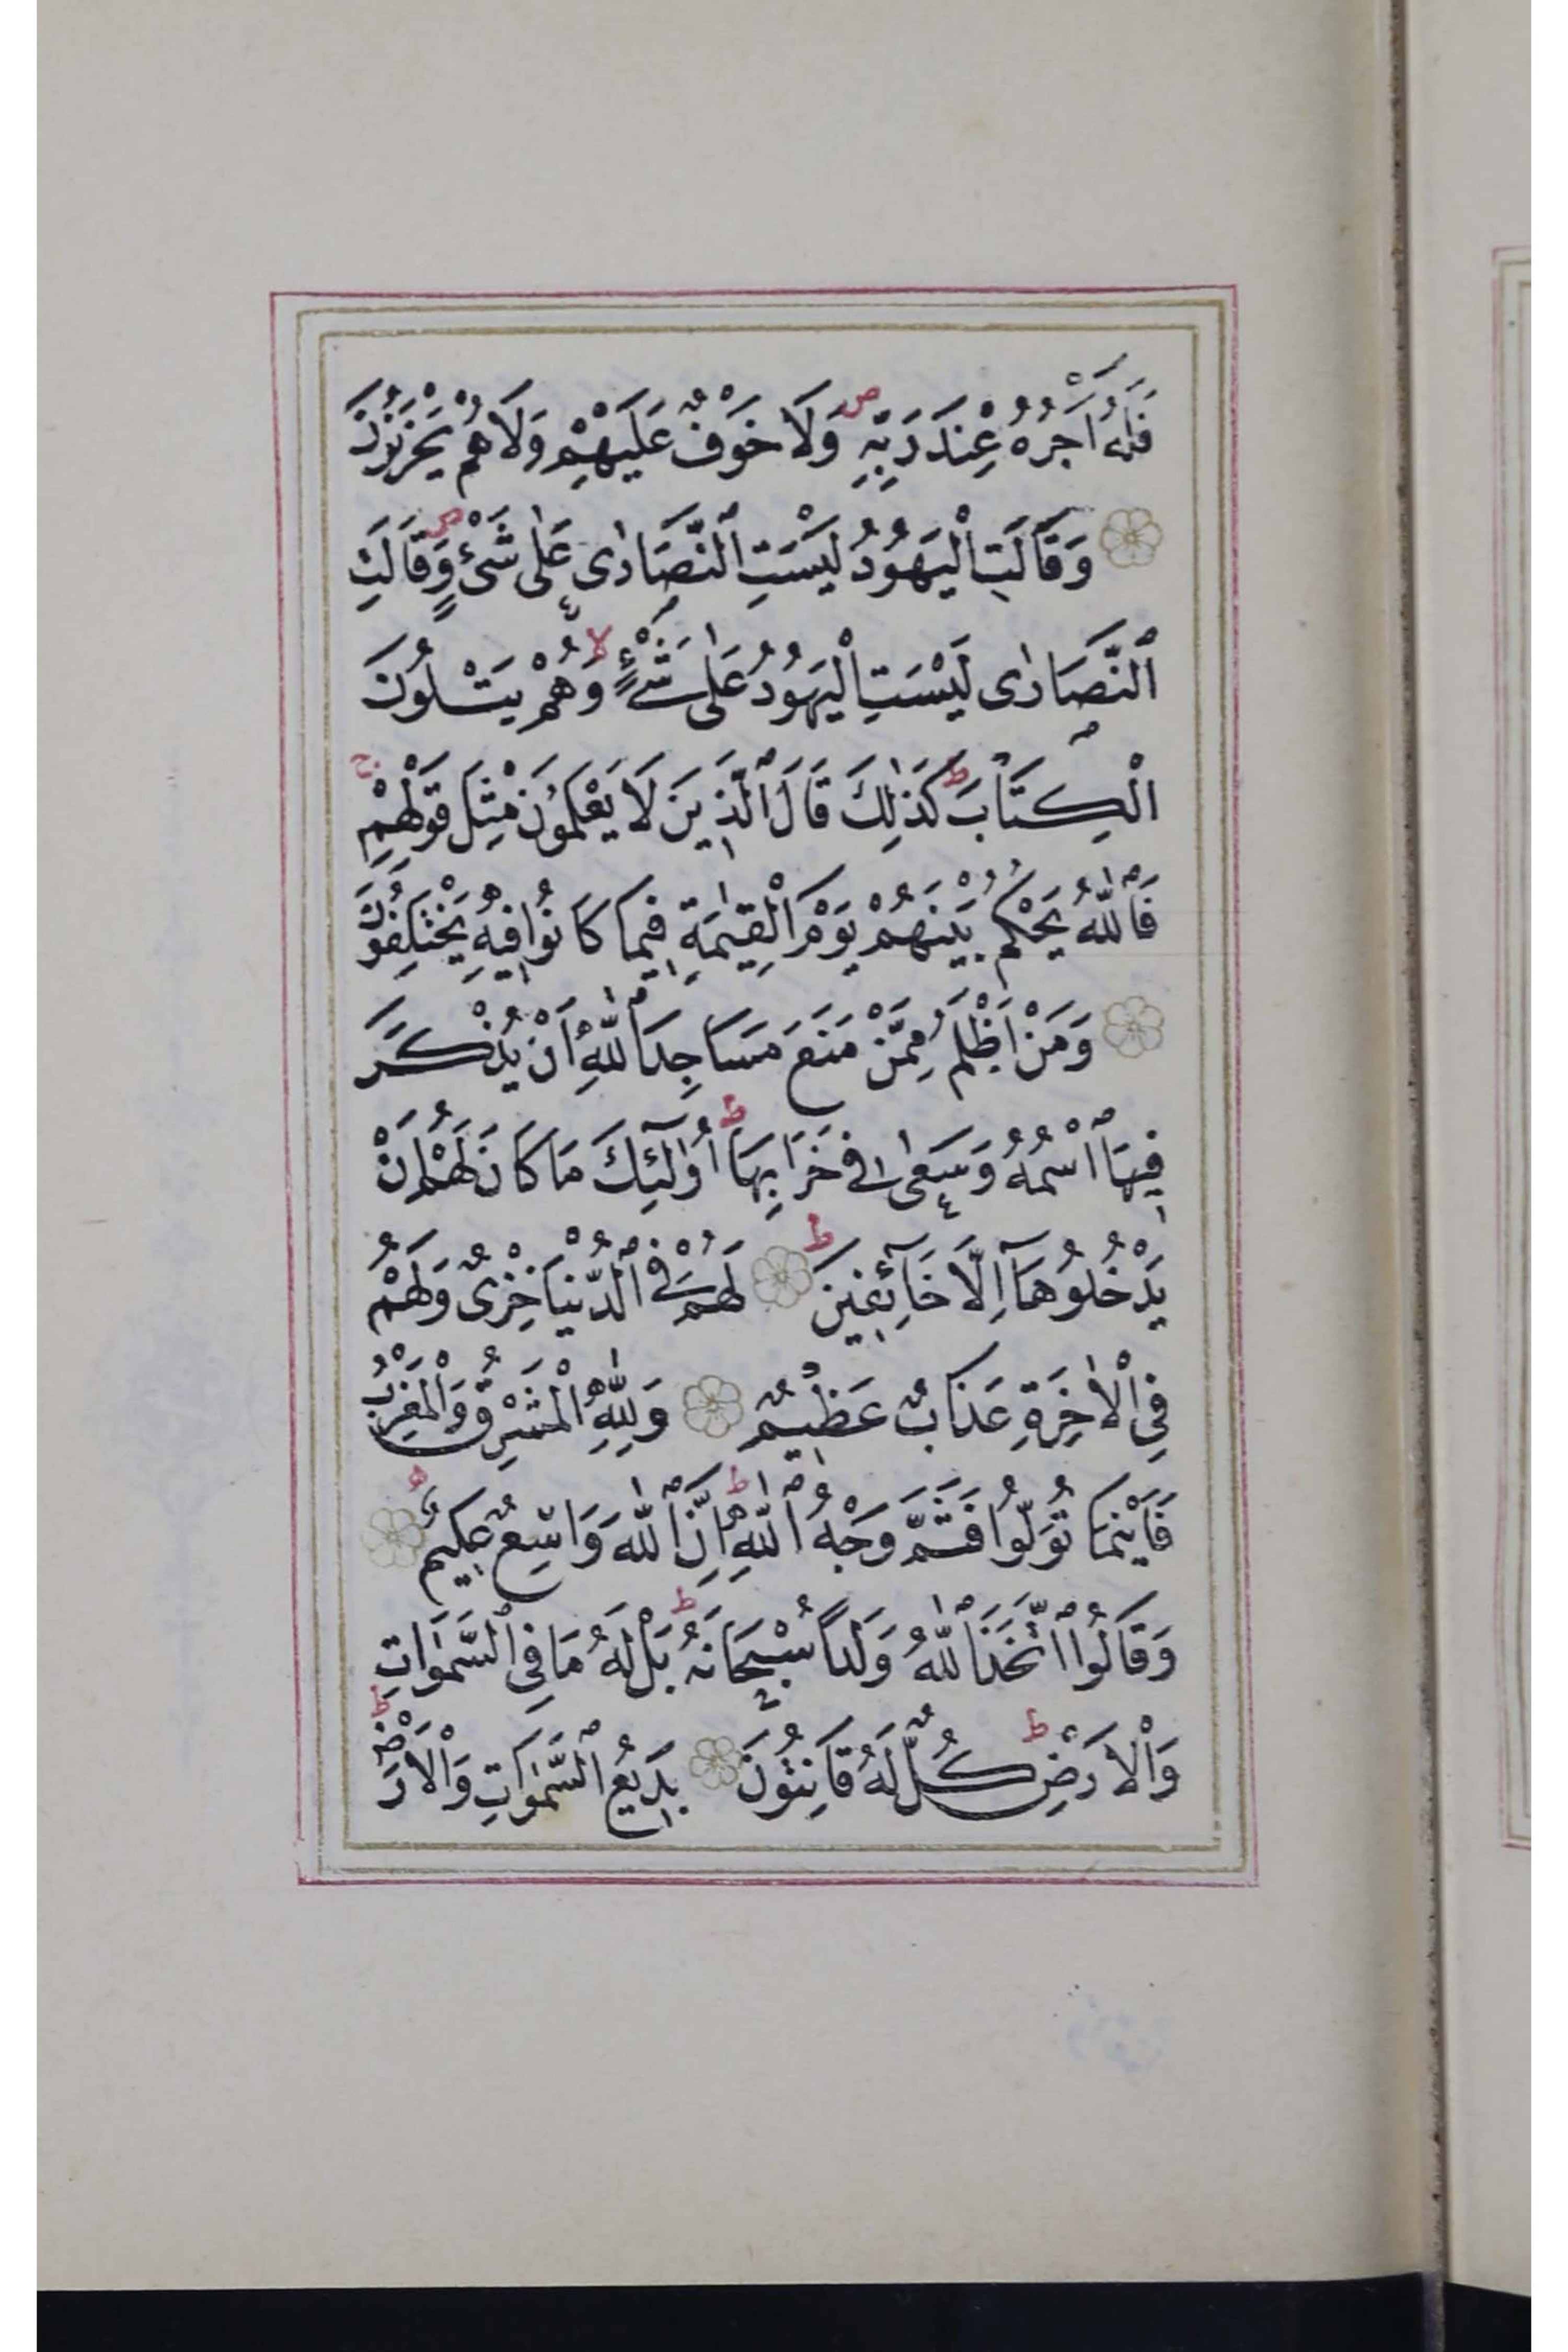 فَلَهُٓ اَجْرُهُ عِنْدَ رَبِّهٖ ۖ وَلَا خَوْفٌ عَلَيْهِمْ وَلَا هُمْ يَحْزَنُونَ
وَقَالَتِ الْيَهُودُ لَيْسَتِ ٱلنَّصَارٰى عَلٰى شَىْءٍ ۖ وَقَالَتِ
ٱلنَّصَارٰى لَيْسَتِ الْيَهُودُ عَلٰى شَىْءٍ ۙ وَهُمْ يَتْلُونَ
الْكِتَابَ ط كَذٰلِكَ قَالَ ٱلَّذِينَ لَا يَعْلَمُونَ مِثْلَ قَوْلِهِمْ ج
فَٱللّٰهُ يَحْكُمُ بَيْنَهُمْ يَوْمَ الْقِيٰمَةِ فِيمَا كَانُوا فِيهِ يَخْتَلِفُونَ
وَمَنْ اَظْلَمُ مِمَّنْ مَنَعَ مَسَاجِدَ ٱللّٰهِ اَنْ يُذْكَرَ
فِيهَا ٱسْمُهُ وَسَعٰى فِى خَرَابِهَا ط اُولٰٓئِكَ مَا كَانَ لَهُمْ اَنْ
يَدْخُلُوهَآ اِلَّا خَآئِفِينَ ط لَهُمْ فِى ٱلدُّنْيَا خِزْىٌ وَلَهُمْ
فِى الْاٰخِرَةِ عَذَابٌ عَظِيمٌ وَلِلّٰهِ الْمَشْرِقُ وَالْمَغْرِبُ
فَاَيْنَمَا تُوَلُّوا فَثَمَّ وَجْهُ ٱللّٰهِ ط اِنَّ ٱللّٰهَ وَاسِعٌ عَلِيمٌ
وَقَالُوا ٱتَّخَذَ ٱللّٰهُ وَلَدًا سُبْحَانَهُ ط بَلْ لَهُ مَا فِى ٱلسَّمٰوَاتِ
وَالْاَرْضِ ط كُلٌّ لَهُ قَانِتُونَ بَدِيعُ ٱلسَّمٰوَاتِ وَالْاَرْضِ ط